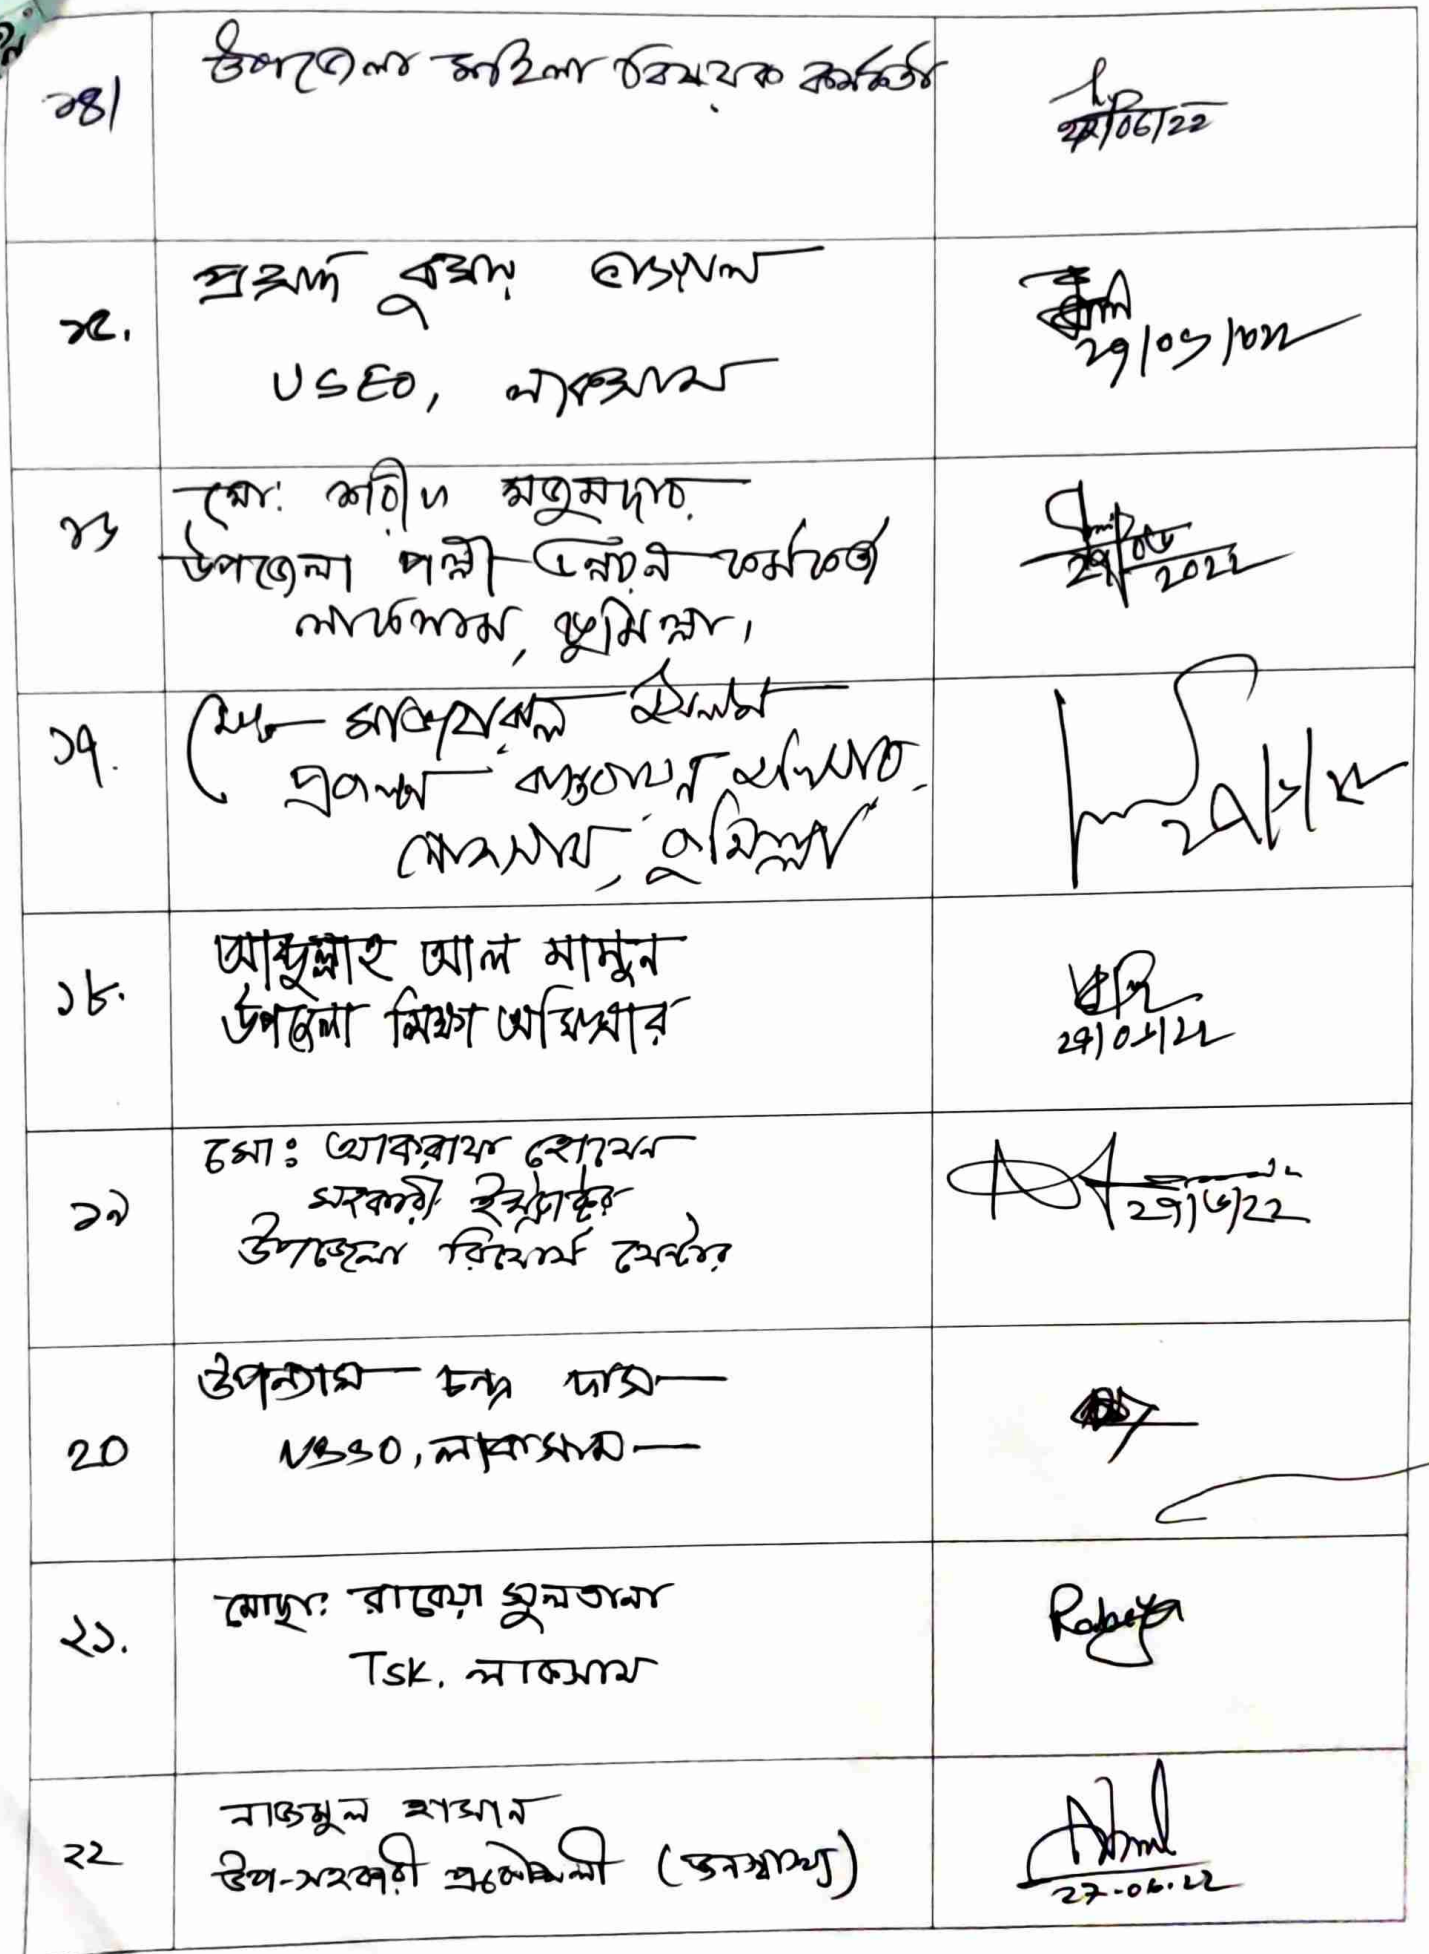 ১৪।
উপজেলা মহিলা বিষয়ক কর্মকর্তা
22/06/22
১৫.
কুমার
USEO, লাকসাম
২৭/০৬/২০২২
১৬
মো: শরীফ মজুমদার
উপজেলা পল্লী উন্নয়ন কর্মকর্তা
লাকসাম, কুমিল্লা।
২৭/০৬/২০২২
১৭.
ইসলাম
প্রকল্প বাস্তবায়ন
লাকসাম, কুমিল্লা
১৮.
আব্দুল্লাহ আল মামুন
উপজেলা শিক্ষা অফিসার
১৯
মো: আকরাম হোসেন
সহকারী ইন্সট্রাক্টর
উপজেলা রিসোর্স সেন্টার
২৭/৬/২২
20
উপন্যাস চন্দ্র দাস
USSO, লাকসাম
২১.
মোছা: রাবেয়া সুলতানা
TSK. লাকসাম
Rabeya
২২
নাজমুল হাসান
উপ-সহকারী প্রকৌশলী (জনস্বাস্থ্য)
27.06.22